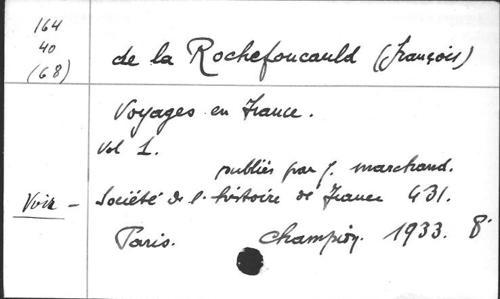 164
40
(68)
de la Rochefoucauld (François)
Voyages en France.
Vol 1.
publiés par J. Marchand.
Voir - Société de l'histoire de France 431.
Paris. Champion. 1933. 8°